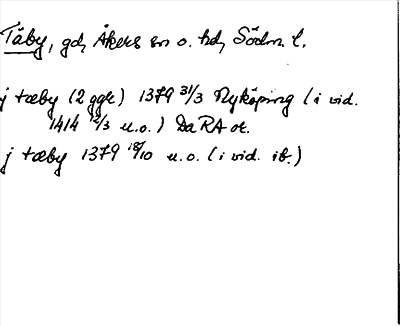 Täby, gd, Åkers sn o. hd, Södm. l.
j tæby (2 ggr) 1379 31/3 Nyköping (i vid.
1414 12/3 u.o.) DaRA or.
j tæby 1379 18/10 u.o. (i vid. ib.)